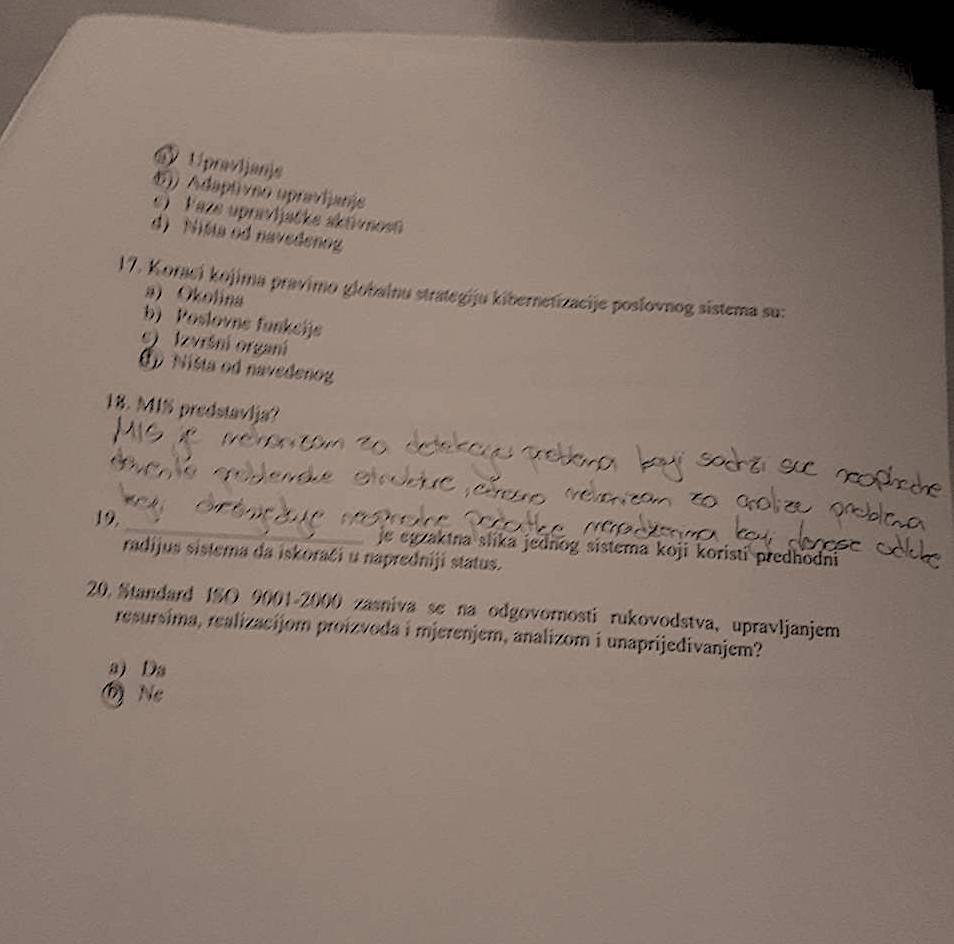 a) Upravljanje
b) Adaptivno upravljanje
c) Faze upravljačke aktivnosti
d) Ništa od navedenog
17. Koraci kojima pravimo globalnu strategiju kibernetizacije poslovnog sistema su:
a) Okolina
b) Poslovne funkcije
c) Izvršni organi
d) Ništa od navedenog
18. MIS predstavlja?
MIS je mehanizam za detekciju problema koji sadrži sve neophodne
elemente problemske strukture, mehanizam za analizu problema
koji neophodne podatke koji donose odluke
19. je egzaktna slika jednog sistema koji koristi predhodni
radijus sistema da iskorači u napredniji status.
20. Standard ISO 9001-2000 zasniva se na odgovornosti rukovodstva, upravljanjem
resursima, realizacijom proizvoda i mjerenjem, analizom i unaprijeđivanjem?
a) Da
b) Ne